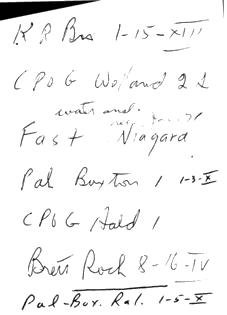 K R Bro 1-15-XIII
CPOG Wolland 2 1
water and.
Fast Niagara
Pal Buxton 1 1-3-X
CPOG Hald 1
Brett Rock 8-16-IV
Pal-Bux. Ral. 1-5-X